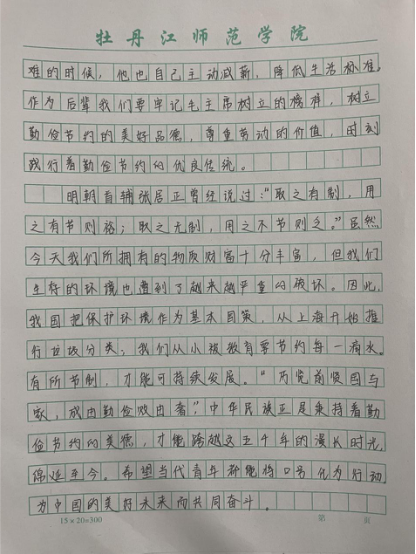 牡丹江师范学院
难的时候，他也自己主动减薪，降低生活标准。
作为后辈我们要牢记毛主席树立的榜样，树立
勤俭节约的美好品德，尊重劳动的价值，时刻
践行着勤俭节约的优良传统。
明朝首辅张居正曾经说过："取之有制，用
之有节则裕；取之无制，用之不节则乏。"虽然
今天我们所拥有的物质财富十分丰富，但我们
生存的环境也遭到了越来越严重的破坏。因此，
我国把保护环境作为基本国策，从上海开始推
行垃圾分类；我们从小被教育要节约每一滴水。
有所节制，才能可持续发展。"历览前贤国与
家，成由勤俭败由奢"中华民族正是秉持着勤
俭节约的美德，才能跨越这五千年的漫长时光，
绵延至今。希望当代青年都能将口号化为行动
为中国的美好未来而共同奋斗。
15×20=300 第 页